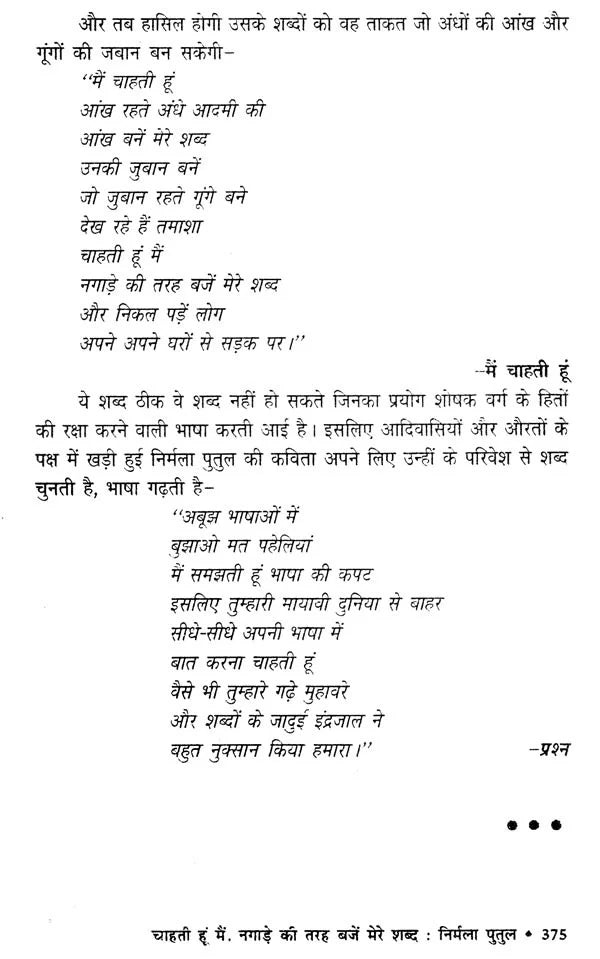 और तब हासिल होगी उसके शब्दों को वह ताकत जो अंधों की आंख और
गूंगों की जबान बन सकेगी–
“मैं चाहती हूं
आंख रहते अंधे आदमी की
आंख बनें मेरे शब्द
उनकी जुबान बनें
जो जुबान रहते गूंगे बने
देख रहे हैं तमाशा
चाहती हूं मैं
नगाड़े की तरह बजें मेरे शब्द
और निकल पड़ें लोग
अपने अपने घरों से सड़क पर।”
–मैं चाहती हूं
ये शब्द ठीक वे शब्द नहीं हो सकते जिनका प्रयोग शोषक वर्ग के हितों
की रक्षा करने वाली भाषा करती आई है। इसलिए आदिवासियों और औरतों के
पक्ष में खड़ी हुई निर्मला पुतुल की कविता अपने लिए उन्हीं के परिवेश से शब्द
चुनती है, भाषा गढ़ती है–
“अबूझ भाषाओं में
बुझाओ मत पहेलियां
मैं समझती हूं भाषा की कपट
इसलिए तुम्हारी मायावी दुनिया से बाहर
सीधे-सीधे अपनी भाषा में
बात करना चाहती हूं
वैसे भी तुम्हारे गढ़े मुहावरे
और शब्दों के जादुई इंद्रजाल ने
बहुत नुक्सान किया हमारा।” –प्रश्न
● ● ●
चाहती हूं मैं. नगाड़े की तरह बजें मेरे शब्द : निर्मला पुतुल • 375